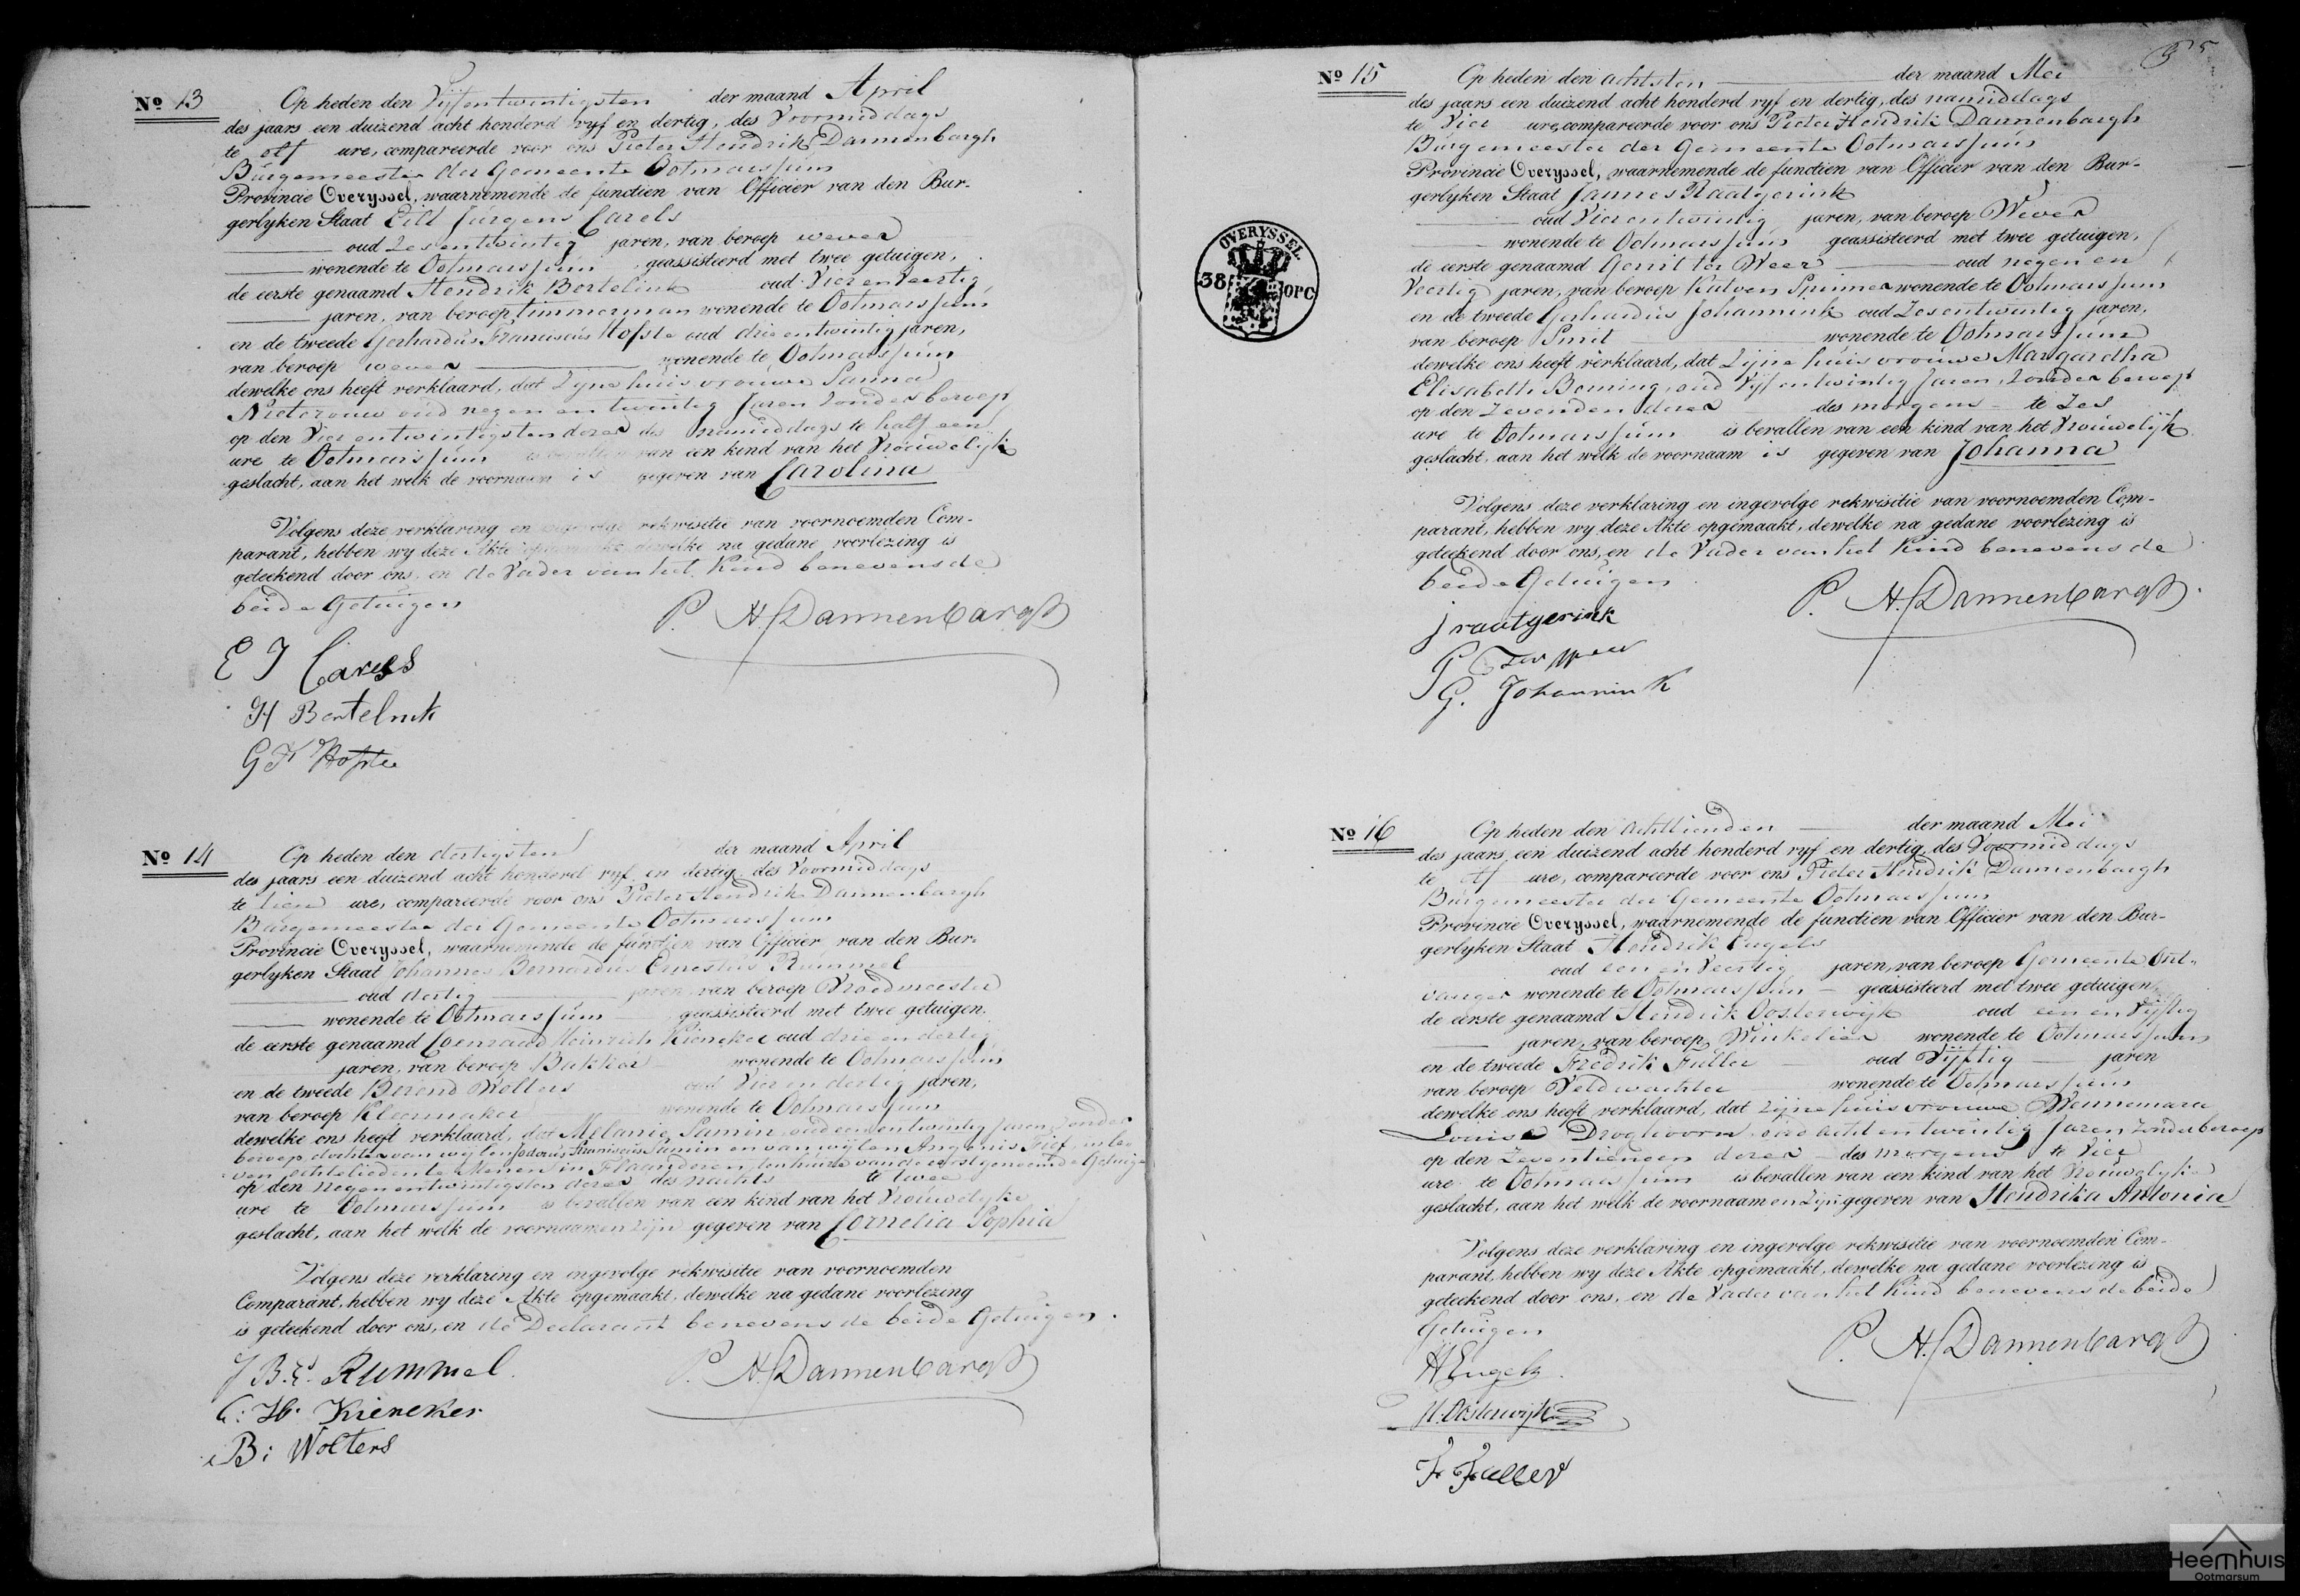 No 13
Op heden den Vijfentwintigsten der maand April
des jaars een duizend acht honderd vyf en dertig, des Voormiddags
te elf ure, compareerde voor ons Pieter Hendrik Dannenbargh
Burgemeester der Gemeente Ootmarssum
Provincie Overyssel, waarnemende de functien van Officier van den Bur-
gerlyken Staat Eilt Jurgens Carels
oud Zesentwintig jaren, van beroep wever
wonende te Ootmarssum geassisteerd met twee getuigen,
de eerste genaamd Hendrik Bertelink oud Vier en Veertig
jaren, van beroep timmerman wonende te Ootmarssum
en de tweede Gerhardus Franciscus Hofste oud drie entwintig jaren,
van beroep wever wonende te Ootmarssum
dewelke ons heeft verklaard, dat Zijne huisvrouwe Sanna
oud negen en twintig Jaren Zonder beroep
op den Vier entwintigsten dezer des namiddags te half een
ure te Ootmarssum is bevallen van een kind van het Vrouwelijk
geslacht, aan het welk de voornaam is gegeven van Carolina
Volgens deze verklaring en ingevolge rekwisitie van voornoemden Com-
parant, hebben wy deze Akte opgemaakt, dewelke na gedane voorlezing is
geteekend door ons, en de Vader van het Kind benevens de
beide Getuigen
P. H. Dannenbargh
E J Carels
H Bertelink
G F Hofste
No 14
Op heden den dertigsten der maand April
des jaars een duizend acht honderd vyf en dertig, des Voormiddags
te tien ure, compareerde voor ons Pieter Hendrik Dannenbargh
Burgemeester der Gemeente Ootmarssum
Provincie Overyssel, waarnemende de functien van Officier van den Bur-
gerlyken Staat Johannes Bernardus Ernestus Rummel
oud dertig jaren, van beroep Vroedmeester
wonende te Ootmarssum geassisteerd met twee getuigen,
de eerste genaamd Coenraad Heinrich Kieneker oud drie en dertig
jaren, van beroep Bakker wonende te Ootmarssum
en de tweede Berend Wolters oud Vier en dertig jaren,
van beroep Kleermaker wonende te Ootmarssum
dewelke ons heeft verklaard, dat Melanie Samin oud een entwintig Jaren zonder
beroep dochter van wylen Franciscus Samin en van wijlen
echtelieden te Menen in Flaanderen, ten huize van de eerstgenoemde Getuige
op den negenentwintigsten dezer des nachts te twee
ure te Ootmarssum is bevallen van een kind van het Vrouwelyke
geslacht, aan het welk de voornaamen zijn gegeven van Cornelia Sophia
Volgens deze verklaring en ingevolge rekwisitie van voornoemden
Comparant, hebben wy deze Akte opgemaakt, dewelke na gedane voorlezing
is geteekend door ons, en de Declarant benevens de beide Getuigen.
J B. E. Rummel
P. H. Dannenbargh
C: H. Kieneker
B: Wolters
OVERYSSEL
38 OPC
5
No 15
Op heden den achtsten der maand Mei
des jaars een duizend acht honderd vyf en dertig, des namiddags
te Vier ure, compareerde voor ons Pieter Hendrik Dannenbargh
Burgemeester der Gemeente Ootmarssum
Provincie Overyssel, waarnemende de functien van Officier van den Bur-
gerlyken Staat Jannes Raatgerink
oud Vier entwintig jaren, van beroep Wever
wonende te Ootmarssum geassisteerd met twee getuigen,
de eerste genaamd Gerrit ter Weer oud negen en
Veertig jaren, van beroep Katoen Spinner wonende te Ootmarssum
en de tweede Gerhardus Johannink oud Zesentwintig jaren,
van beroep Smit wonende te Ootmarssum
dewelke ons heeft verklaard, dat Zijne huisvrouwe Margaretha
Elisabeth Boming, oud Vijf entwintig Jaren, Zonder beroep
op den Zevenden dezer des morgens te Zes
ure te Ootmarssum is bevallen van een kind van het Vrouwelijk
geslacht, aan het welk de voornaam is gegeven van Johanna
Volgens deze verklaring en ingevolge rekwisitie van voornoemden Com-
parant, hebben wy deze Akte opgemaakt, dewelke na gedane voorlezing is
geteekend door ons, en de Vader van het Kind benevens de
beide Getuigen
P. H. Dannenbargh
J raatgerink
G Ter Weer
G. Johannink
No 16
Op heden den achttienden der maand Mei
des jaars een duizend acht honderd vyf en dertig, des Voormiddags
te elf ure, compareerde voor ons Pieter Hendrik Dannenbargh
Burgemeester der Gemeente Ootmarssum
Provincie Overyssel, waarnemende de functien van Officier van den Bur-
gerlyken Staat Hendrik Engels
oud een en Veertig jaren, van beroep Gemeente Ont-
vanger wonende te Ootmarssum geassisteerd met twee getuigen,
de eerste genaamd Hendrik Oosterwijk oud een en Vijftig
jaren, van beroep Winkelier wonende te Ootmarssum
en de tweede Fredrik Fuller oud Vijftig jaren
van beroep Veldwachter wonende te Ootmarssum
dewelke ons heeft verklaard, dat zijne huisvrouwe Wennemara
Louisa Droghoorn oud acht entwintig Jaren zonder beroep
op den Zeventienden dezer des morgens te Vier
ure te Ootmarssum is bevallen van een kind van het Vrouwelyke
geslacht, aan het welk de voornaamen Zijn gegeven van Hendrika Antonia
Volgens deze verklaring en ingevolge rekwisitie van voornoemden Com-
parant, hebben wy deze Akte opgemaakt, dewelke na gedane voorlezing is
geteekend door ons, en de Vader van het Kind benevens de beide
Getuigen
P. H. Dannenbargh
H Engels
H. Oosterwijk
F. Fuller
Heemhuis
Ootmarsum